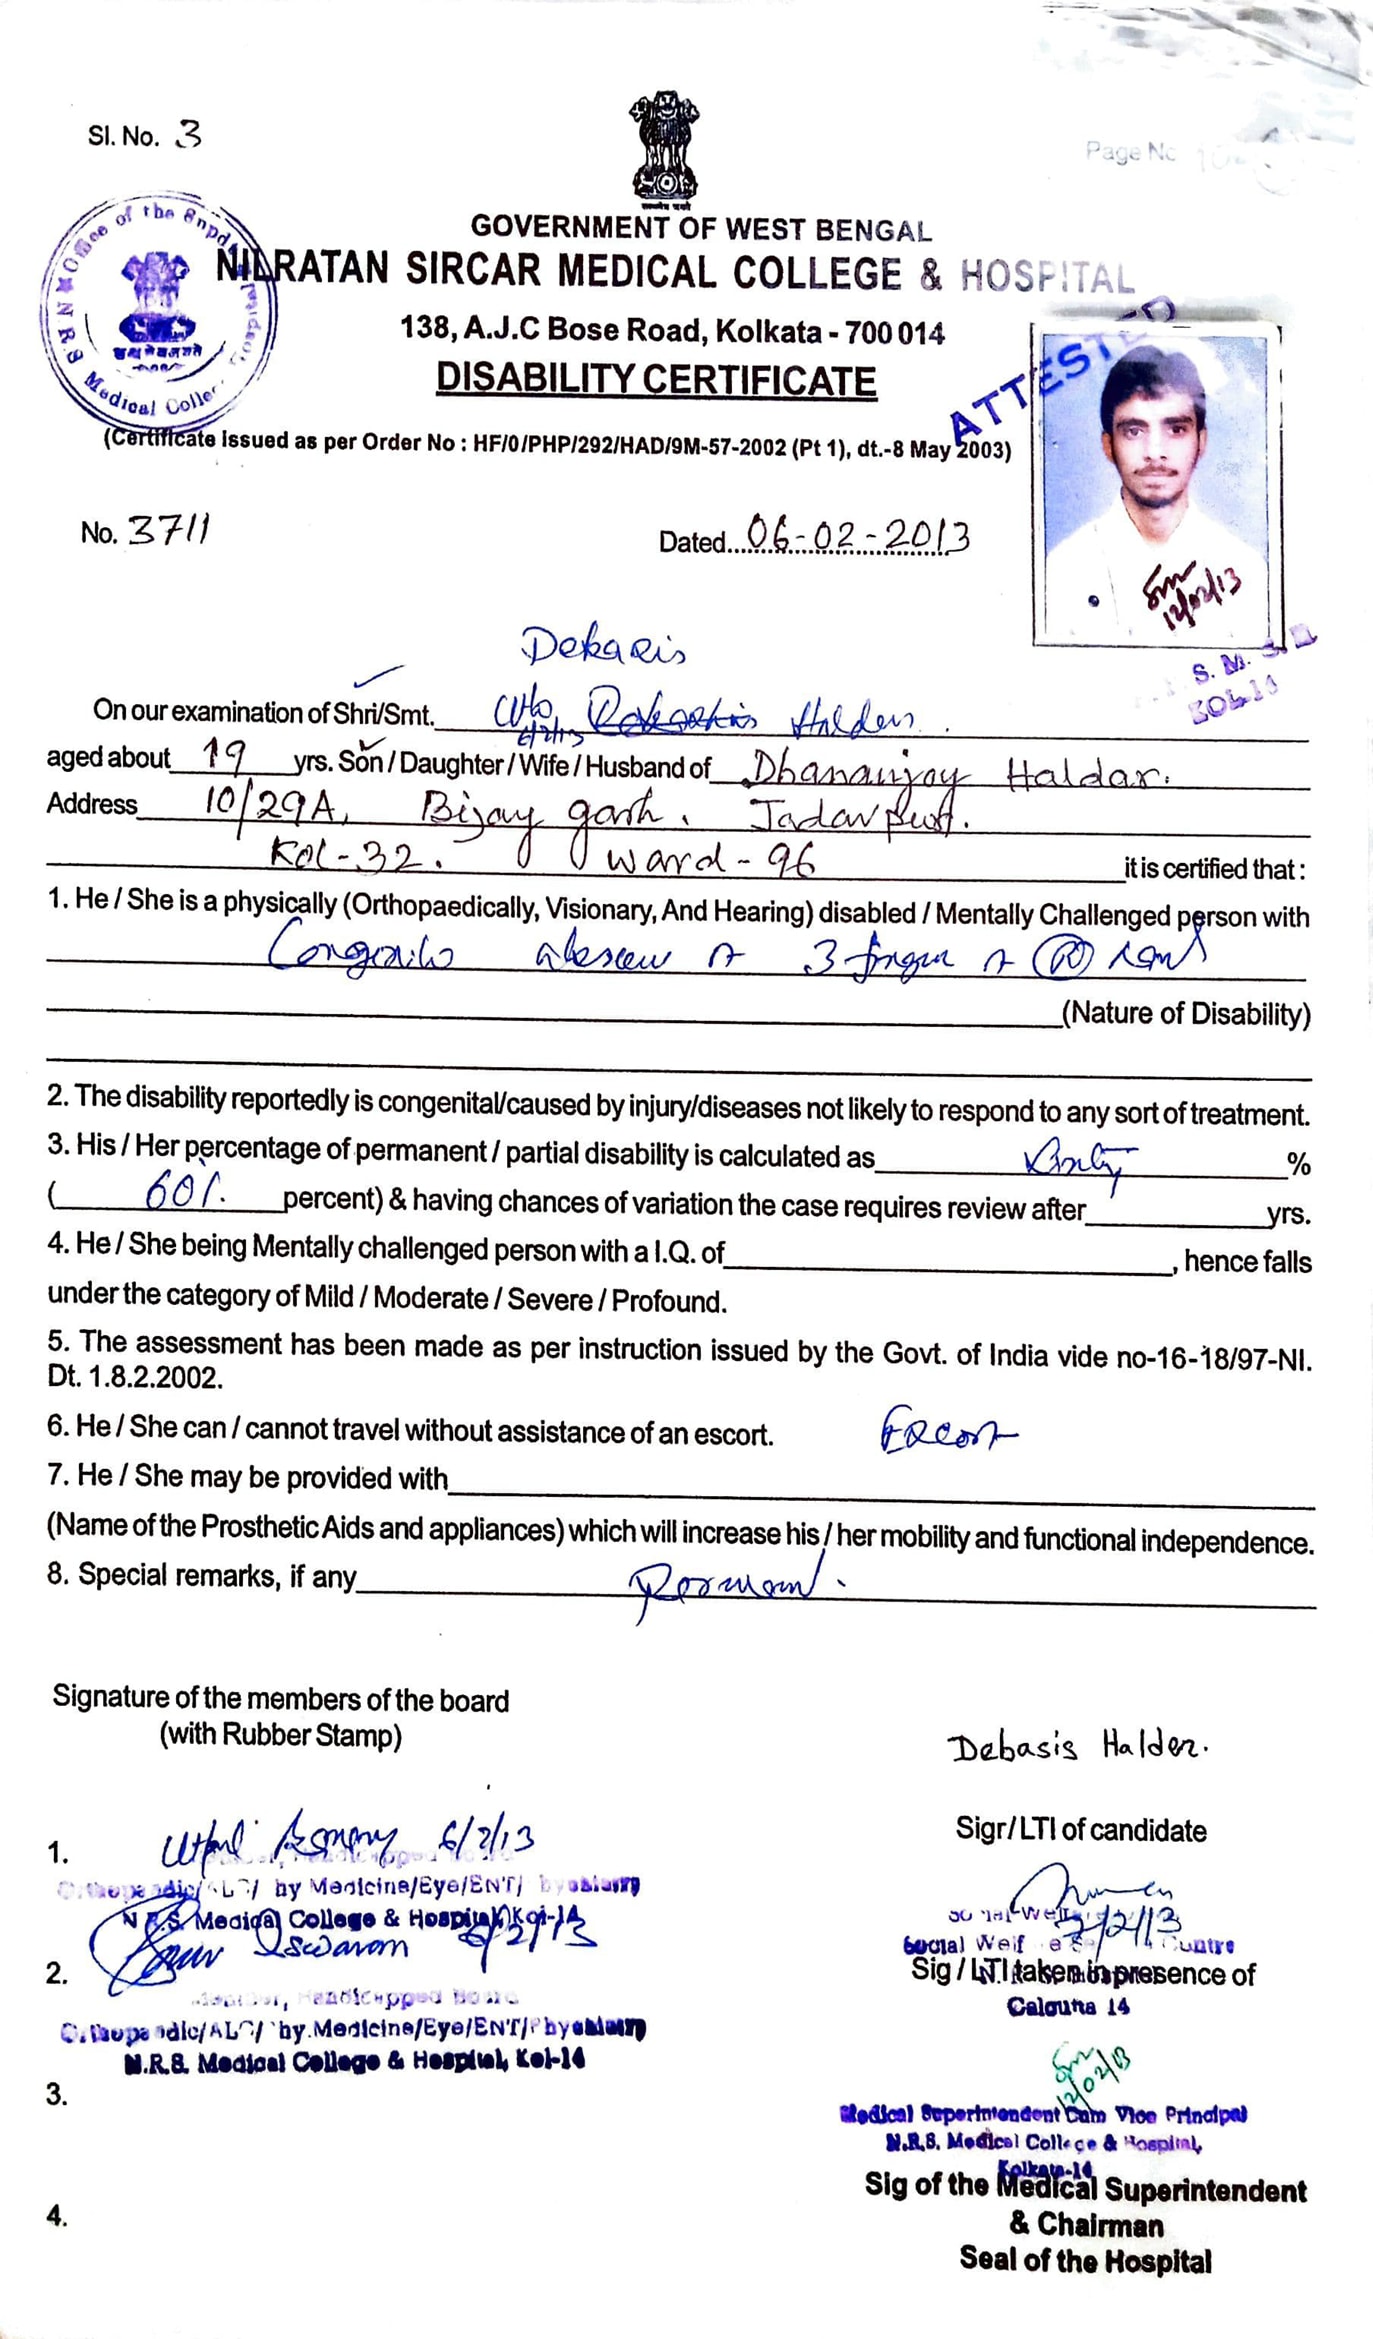 Sl. No. 3
Page No
GOVERNMENT OF WEST BENGAL
NILRATAN SIRCAR MEDICAL COLLEGE & HOSPITAL
138, A.J.C Bose Road, Kolkata - 700 014
DISABILITY CERTIFICATE
ATTESTED
(Certificate issued as per Order No : HF/0/PHP/292/HAD/9M-57-2002 (Pt 1), dt.-8 May 2003)
No. 3711 Dated 06-02-2013
12/02/13
Debasis
On our examination of Shri/Smt. Halder
6/2/13
aged about 19 yrs. Son / Daughter / Wife / Husband of Dhananjoy Haldar.
Address 10/29A, Bijay garh. Jadavpur.
Kol-32. Ward-96 it is certified that :
1. He / She is a physically (Orthopaedically, Visionary, And Hearing) disabled / Mentally Challenged person with
3 finger (R) hand
(Nature of Disability)
2. The disability reportedly is congenital/caused by injury/diseases not likely to respond to any sort of treatment.
3. His / Her percentage of permanent / partial disability is calculated as %
( 60%. percent) & having chances of variation the case requires review after yrs.
4. He / She being Mentally challenged person with a I.Q. of , hence falls
under the category of Mild / Moderate / Severe / Profound.
5. The assessment has been made as per instruction issued by the Govt. of India vide no-16-18/97-NI.
Dt. 1.8.2.2002.
6. He / She can / cannot travel without assistance of an escort. Escort
7. He / She may be provided with
(Name of the Prosthetic Aids and appliances) which will increase his / her mobility and functional independence.
8. Special remarks, if any
Signature of the members of the board
(with Rubber Stamp)
Debasis Halder.
Sigr/LTI of candidate
1. 6/2/13
Medicine/Eye/ENT/
N.R.S. Medical College & Hospital, Kol-14
6/2/13
Sig / LTI taken in presence of
Calcutta 14
2.
Medicine/Eye/ENT/
N.R.S. Medical College & Hospital, Kol-14
3.
12/02/13
Medical Superintendent Cum Vice Principal
N.R.S. Medical College & Hospital,
Kolkata-14
Sig of the Medical Superintendent
& Chairman
Seal of the Hospital
4.